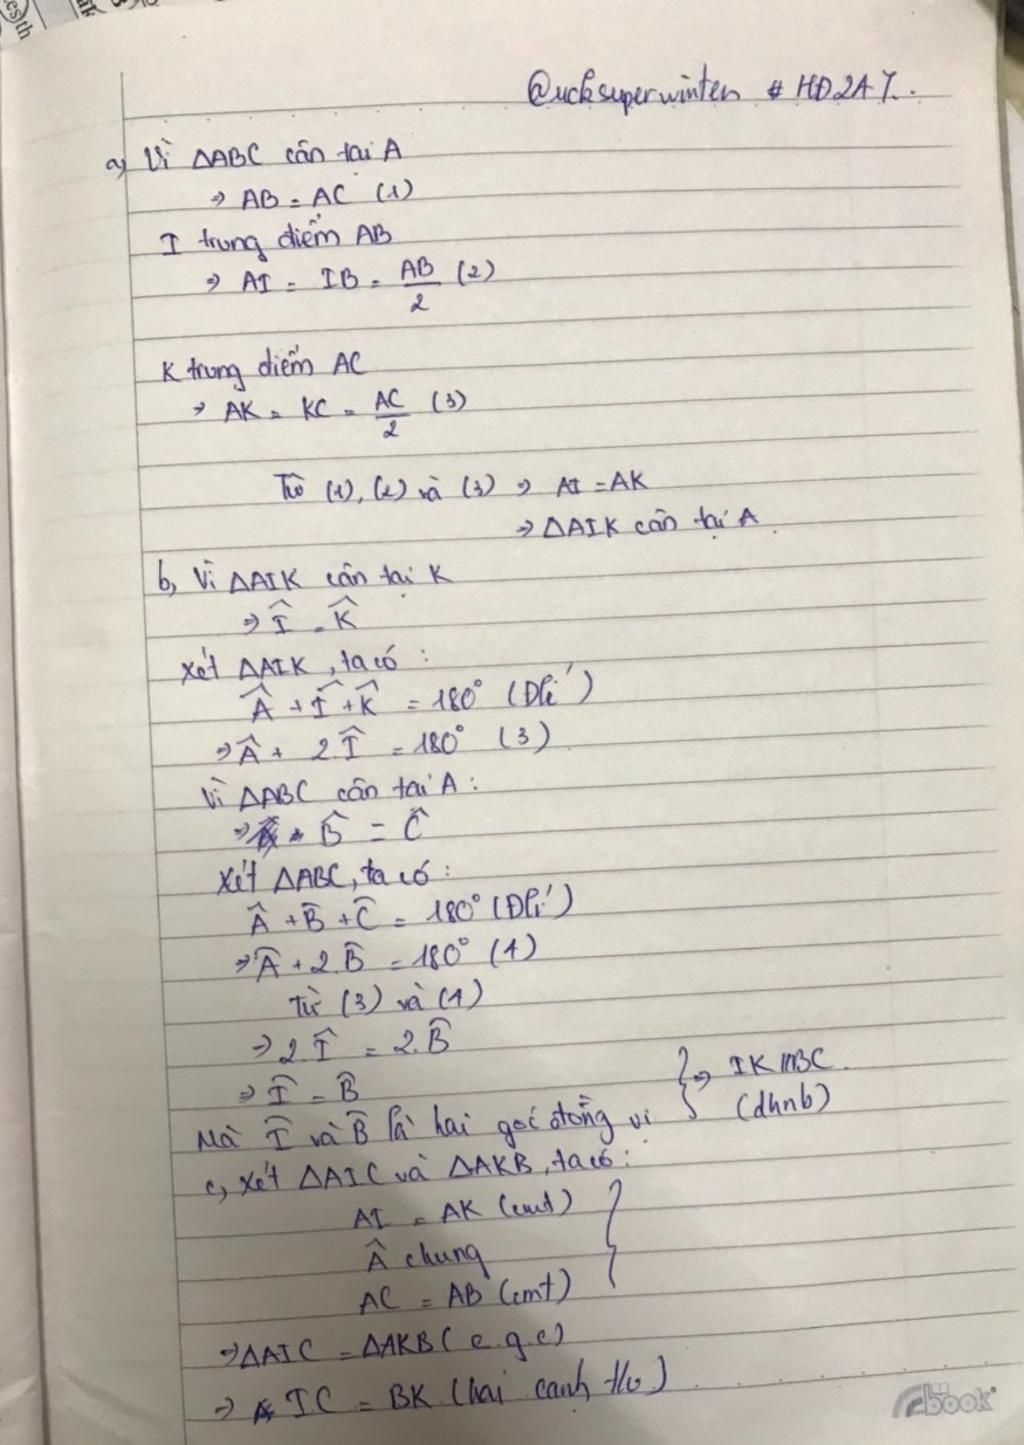 @ucksuperwinter # HĐ2A7.
a, Vì ΔABC cân tại A
⇒ AB = AC (1)
I trung điểm AB
⇒ AI = IB = AB/2 (2)
K trung điểm AC
⇒ AK = KC = AC/2 (3)
Từ (1), (2) và (3) ⇒ AI = AK
⇒ ΔAIK cân tại A.
b, Vì ΔAIK cân tại K
⇒ Î = K̂
Xét ΔAIK, ta có :
Â + Î + K̂ = 180° (Đlí)
⇒ Â + 2.Î = 180° (3)
Vì ΔABC cân tại A :
⇒ B̂ = Ĉ
Xét ΔABC, ta có :
Â + B̂ + Ĉ = 180° (Đlí)
⇒ Â + 2.B̂ = 180° (4)
Từ (3) và (4)
⇒ 2.Î = 2.B̂
⇒ Î = B̂ } ⇒ IK // BC.
Mà Î và B̂ là hai góc đồng vị (dhnb)
c, Xét ΔAIC và ΔAKB, ta có :
AI = AK (cmt)
Â chung
AC = AB (cmt) }
⇒ ΔAIC = ΔAKB (c.g.c)
⇒ IC = BK (hai cạnh tư)
book